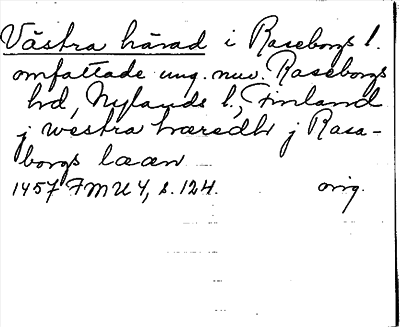 Västra härad i Raseborgs l.
omfattade ung. nuv. Raseborgs
hd, Nylands l., Finland
j westra hæredh j Rasa-
borgs lææn
1457 FMU 4, s. 124. orig.